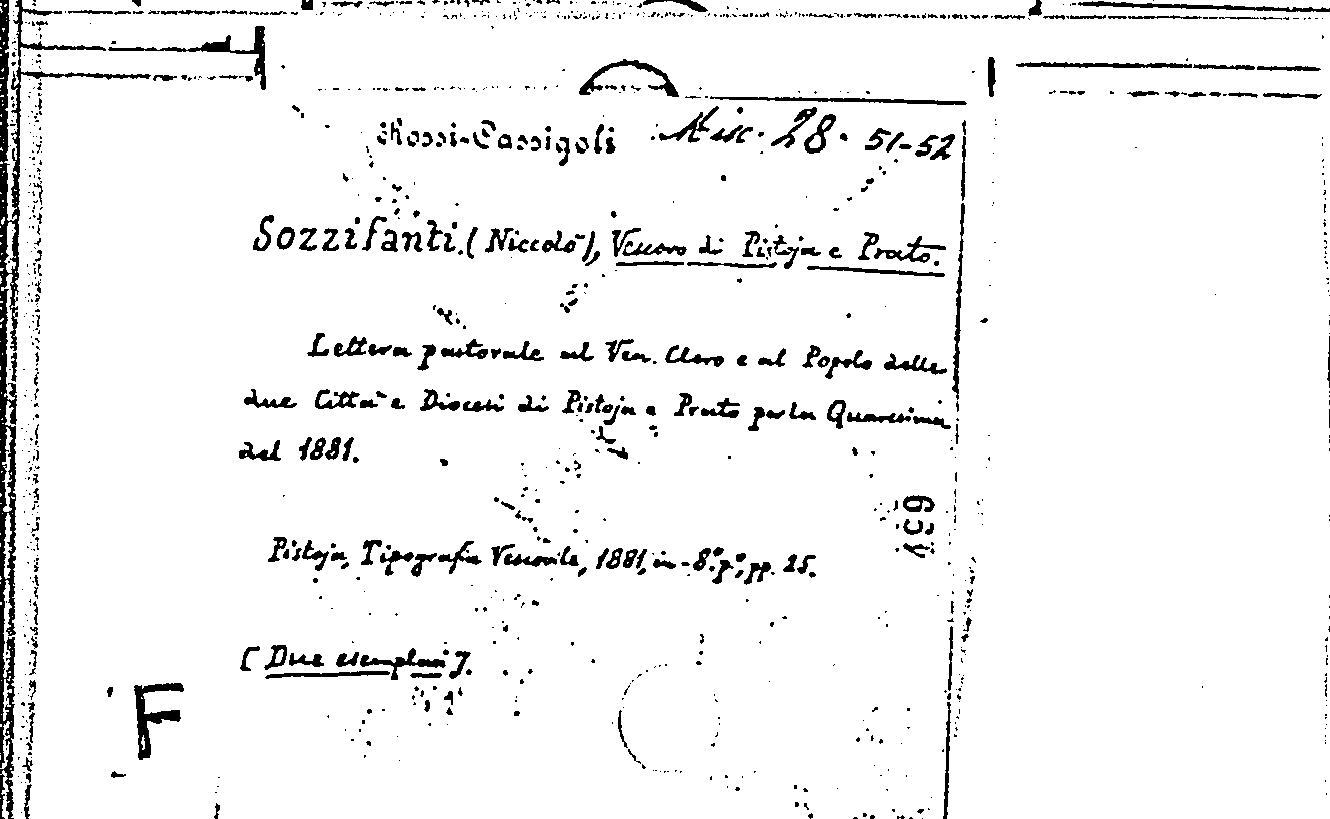 Rossi-Cassigoli Misc. 28. 51-52
Sozzifanti. (Niccolò), Vescovo di Pistoja e Prato.
Lettera pastorale al Ven. Clero e al Popolo delle
due Città e Diocesi di Pistoja e Prato per la Quaresima
del 1881.
Pistoja, Tipografia Vescovile, 1881, in-8.° p.°, pp. 25.
[Due esemplari].
F